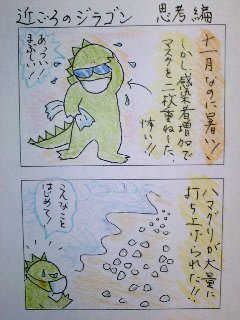 近ごろのジラゴン 思考編
十一月なのに暑い！
しかし感染者増加で
マスクを二枚重ねーした。
怖い！！
あっつい！
まぶしい！
ハマグリが大量に
打ち上げられた！！
こんなこと
はじめて！